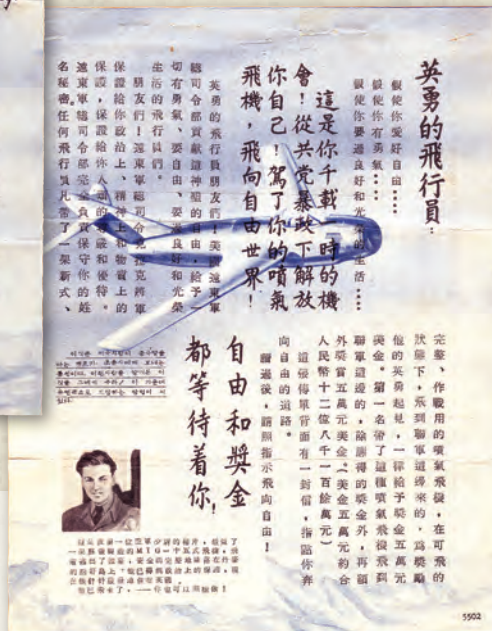 英勇的飛行員:
假使你愛好自由……
假使你有勇氣……
假使你要過良好和光榮的生活……
這是你千載一時的機
會!從共党暴政下解放
你自己!駕了你的噴氣
飛機,飛向自由世界!
英勇的飛行員朋友們!美國遠東軍
總司令部貢獻這神聖的自由,給予一
切有勇氣、要自由、要過良好和光榮
生活的飛行員們。
朋友們!遠東軍總司令克拉克將軍
保證給你政治上、精神上和物質上的
保護,保證給你人道的尊嚴和優待。
遠東軍總司令部完全負責保守你的姓
名秘密。任何飛行員凡帶了一架新式、
完整、作戰用的噴氣飛機,在可飛的
狀態下,飛到聯軍這邊來的,為獎勵
他的英勇起見,一律給予獎金五萬元
美金。第一名帶了這種噴氣飛機飛到
聯軍這邊的,除應得的獎金外,再額
外獎賞五萬元美金(美金五萬元約合
人民幣十二位八千一百餘萬元)
這張傳單背面有一封信,指點你奔
向自由的道路。
讀過後,請照指示飛向自由!
自由和獎金
都等待着你!
5502